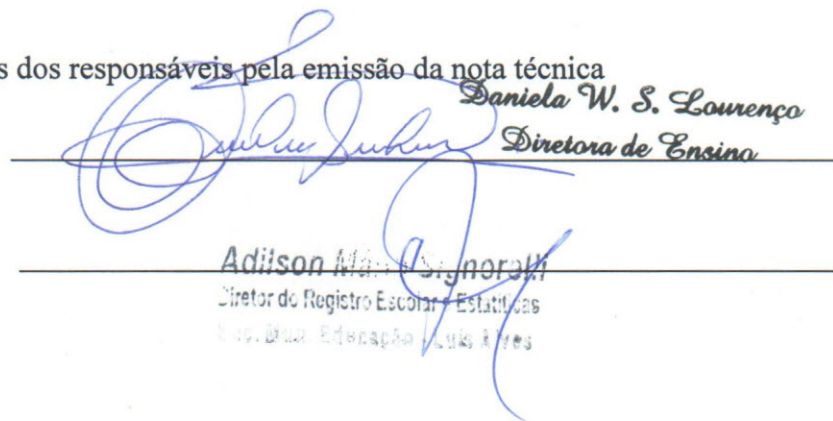 s dos responsáveis pela emissão da nota técnica
Daniela W. S. Lourenço
Diretora de Ensino
Adilson Signorelli
Diretor do Registro Escolar e Estatíticas
Mun. Educação - Luis Alves